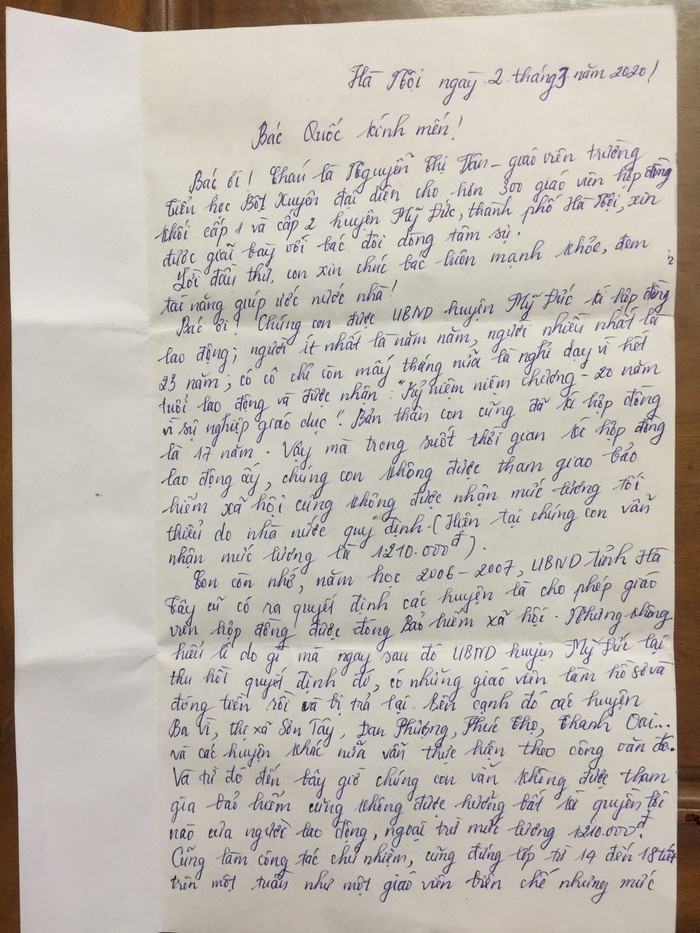 Hà Nội ngày 2 tháng 3 năm 2020!
Bác Quốc kính mến!
Bác ơi! Cháu là Nguyễn Thị Vân - giáo viên trường
tiểu học Bột Xuyên đại diện cho hơn 300 giáo viên hợp đồng
khối cấp 1 và cấp 2 huyện Mỹ Đức, thành phố Hà Nội, xin
được giãi bày với bác đôi dòng tâm sự.
Lời đầu thư, con xin chúc bác luôn mạnh khỏe, đem
tài năng giúp ước nước nhà!
Bác ơi! Chúng con được UBND huyện Mỹ Đức kí hợp đồng
lao động; người ít nhất là năm năm, người nhiều nhất là
23 năm; có cô chỉ còn mấy tháng nữa là nghỉ dạy vì hết
tuổi lao động và được nhận: "Kỷ niệm niệm chương - 20 năm
vì sự nghiệp giáo dục". Bản thân con cũng đã kí hợp đồng
là 17 năm. Vậy mà trong suốt thời gian kí hợp đồng
lao động ấy, chúng con không được tham giao bảo
hiểm xã hội cũng không được nhận mức lương tối
thiểu do nhà nước quy định. (Hiện tại chúng con vẫn
nhận mức lương là 1210.000đ).
Con còn nhớ, năm học 2006-2007, UBND tỉnh Hà
Tây cũ có ra quyết định các huyện là cho phép giáo
viên hợp đồng được đóng Bảo hiểm xã hội. Nhưng không
hiểu lí do gì mà ngay sau đó UBND huyện Mỹ Đức lại
thu hồi quyết định đó, có những giáo viên làm hồ sơ và
đóng tiền rồi và bị trả lại. Bên cạnh đó các huyện
Ba Vì, thị xã Sơn Tây, Đan Phượng, Phúc Thọ, Thanh Oai...
và các huyện khác nữa vẫn thực hiện theo công văn đó.
Và từ đó đến bây giờ chúng con vẫn không được tham
gia bảo hiểm cũng không được hưởng bất kì quyền lợi
nào của người lao động, ngoại trừ mức lương 1210.000đ.
Cũng làm công tác chủ nhiệm, cũng đứng lớp từ 14 đến 18 tiết
trên một tuần như một giáo viên biên chế nhưng mức